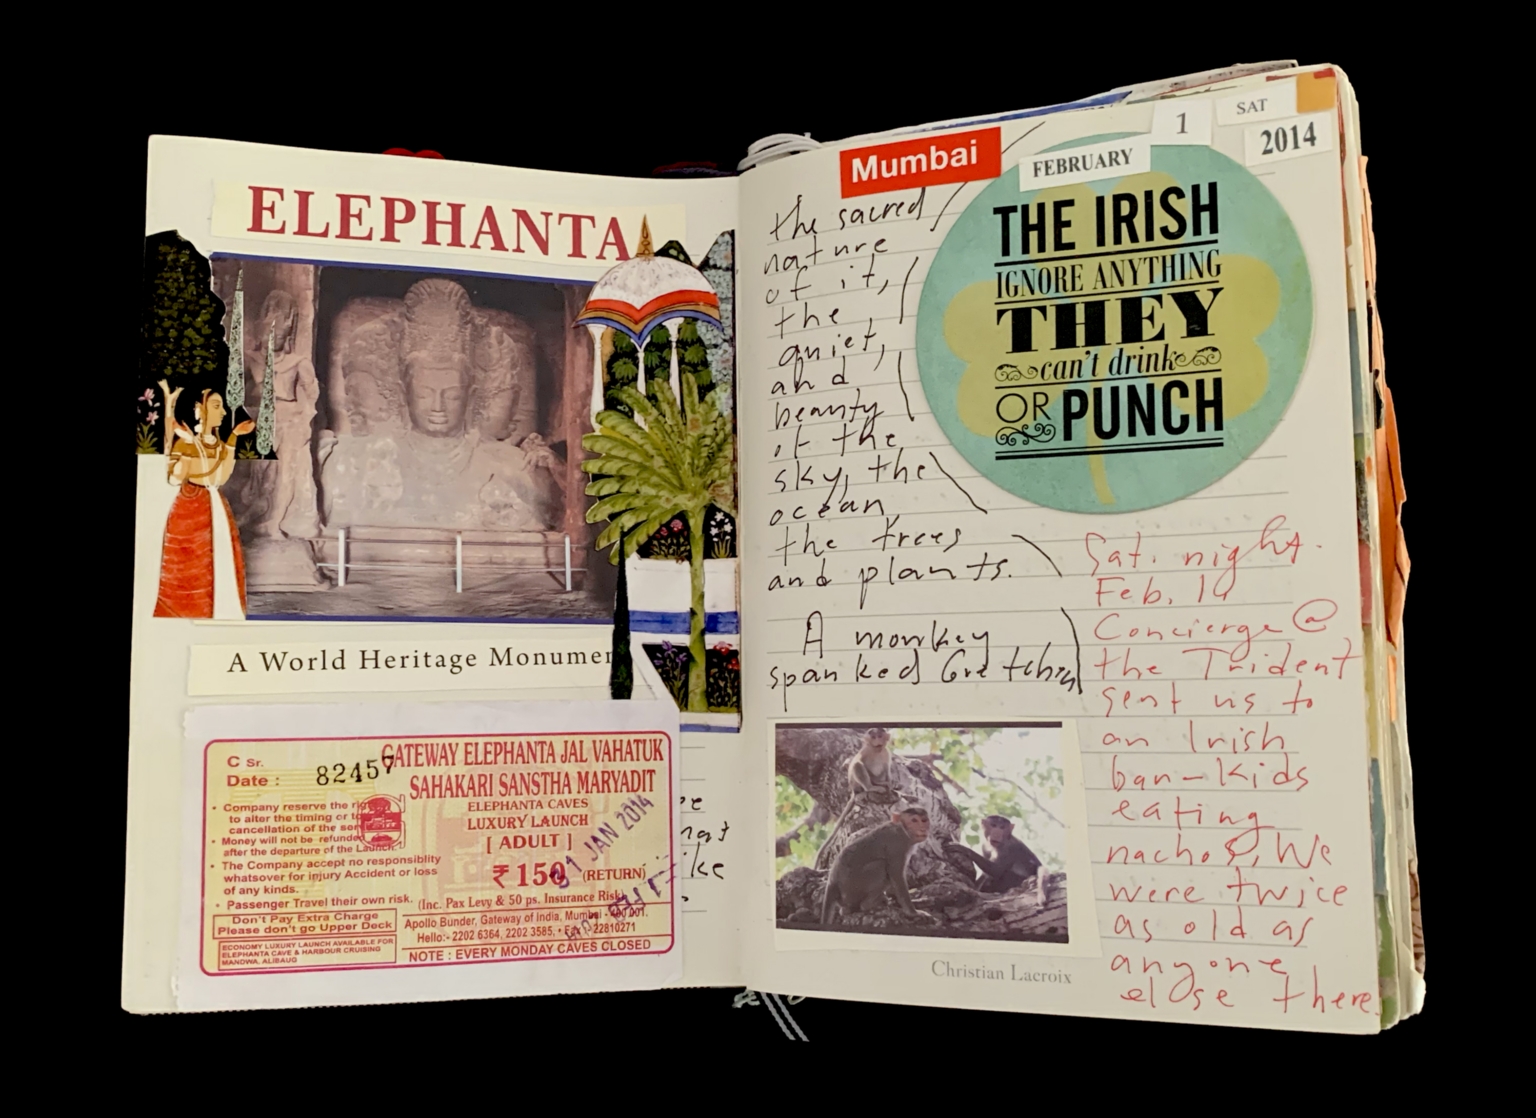 ELEPHANTA
A World Heritage Monumen
C Sr.
Date :
82457
GATEWAY ELEPHANTA JAL VAHATUK
SAHAKARI SANSTHA MARYADIT
ELEPHANTA CAVES
LUXURY LAUNCH
[ ADULT ]
₹ 150 (RETURN)
(Inc. Pax Levy & 50 ps. Insurance Risk)
Apollo Bunder, Gateway of India, Mumbai - 400 001.
Hello:- 2202 6364, 2202 3585, • Fax : 22810271
NOTE : EVERY MONDAY CAVES CLOSED
• Company reserve the
to alter the timing or
cancellation of the
• Money will not be refunded
after the departure of the Launch.
• The Company accept no responsiblity
whatsover for injury Accident or loss
of any kinds.
• Passenger Travel their own risk.
Don't Pay Extra Charge
Please don't go Upper Deck
ECONOMY LUXURY LAUNCH AVAILABLE FOR
ELEPHANTA CAVE & HARBOUR CRUISING
MANDWA, ALIBAUG
31 JAN 2014
1 FEB
Mumbai
FEBRUARY
1
SAT
2014
the sacred
nature
of it,
the
quiet,
and
beauty
of the
sky, the
ocean,
the trees
and plants.
A monkey
spanked Gretchen
THE IRISH
IGNORE ANYTHING
THEY
can't drink
OR PUNCH
Sat. night.
Feb. 1st
Concierge @
the Trident
sent us to
an Irish
bar-kids
eating
nachos, We
were twice
as old as
anyone
else there.
Christian Lacroix